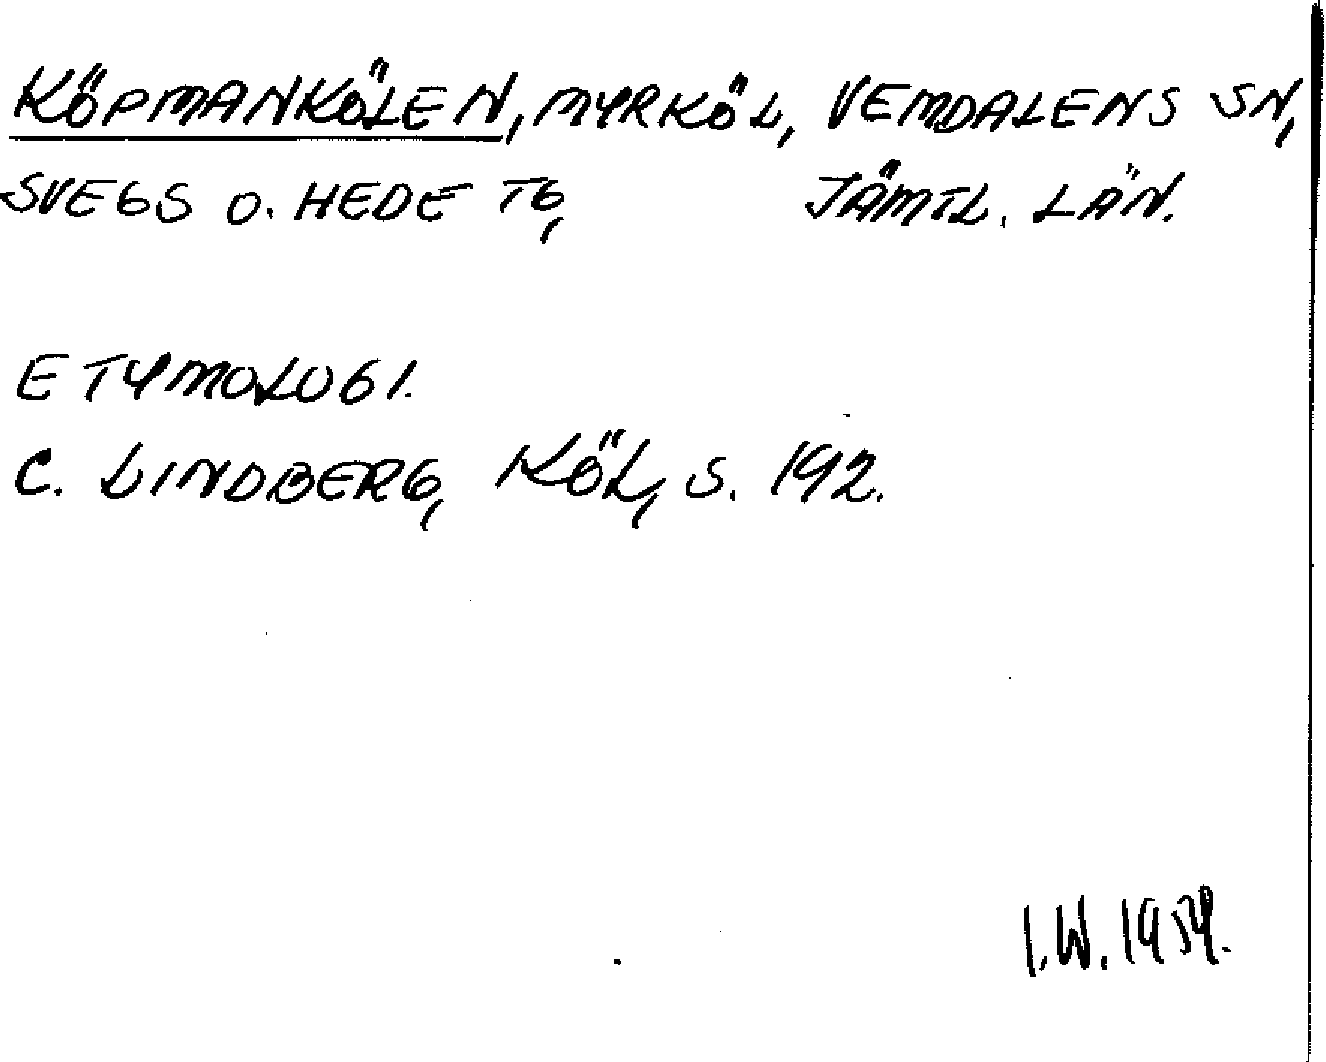 KÖPMANKÖLEN, MYRKÖL, VEMDALENS SN,
SVEGS O. HEDE TG, JÄMTL. LÄN.
ETYMOLOGI.
C. LINDBERG, KÖL, S. 192.
I.W. 1954.